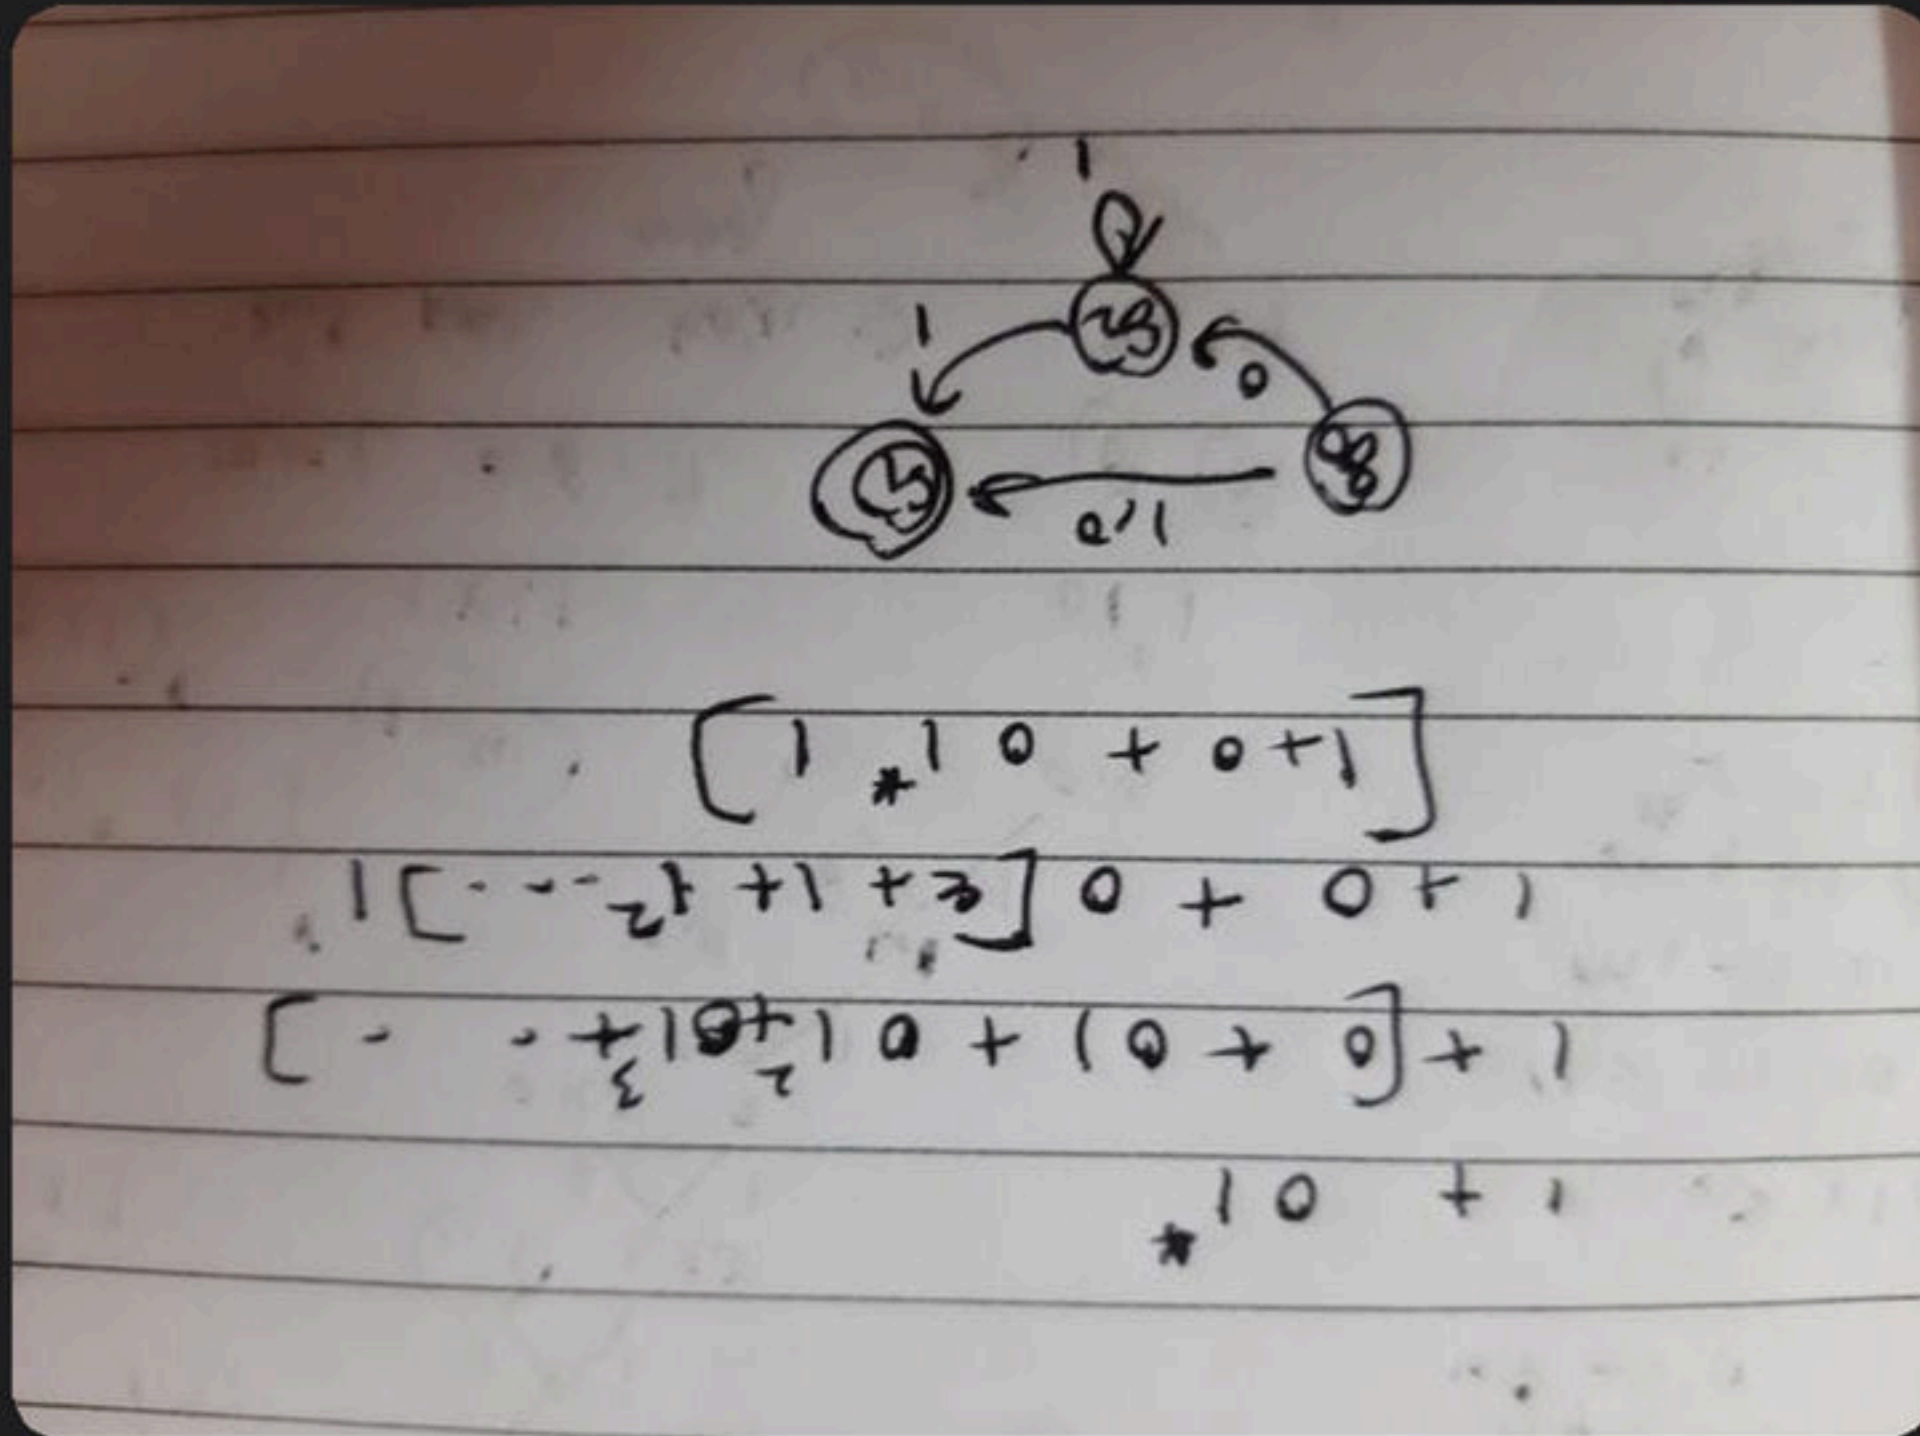 1 + 01*
1 + [0 + 01 + 01² + 01³ + - - -]
1 + 0 + 0 [ε + 1 + 1² - - - -] 1
[1+0 + 0 1* 1]
1,0
q0 q1
0 1
q2
1